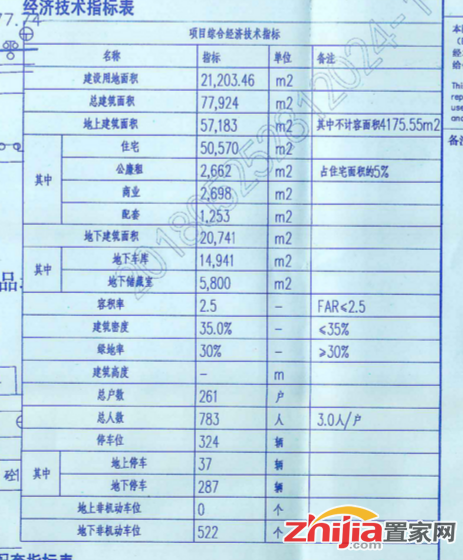 77.74
经济技术指标表
项目综合经济技术指标
名称 指标 单位 备注
建设用地面积 21,203.46 m2
总建筑面积 77,924 m2
地上建筑面积 57,183 m2 其中不计容面积4175.55m2
其中
住宅 50,570 m2
公廉租 2,662 m2 占住宅面积的5%
商业 2,698 m2
配套 1,253 m2
地下建筑面积 20,741 m2
其中
地下车库 14,941 m2
地下储藏室 5,800 m2
容积率 2.5 – FAR≤2.5
建筑密度 35.0% – ≤35%
绿地率 30% – ≥30%
建筑高度 – m
总户数 261 户
总人数 783 人 3.0人/户
停车位 324 辆
其中
地上停车 37 辆
地下停车 287 辆
地上非机动车位 0 个
地下非机动车位 522 个
品
This
repr
use
and
备注
zhijia置家网